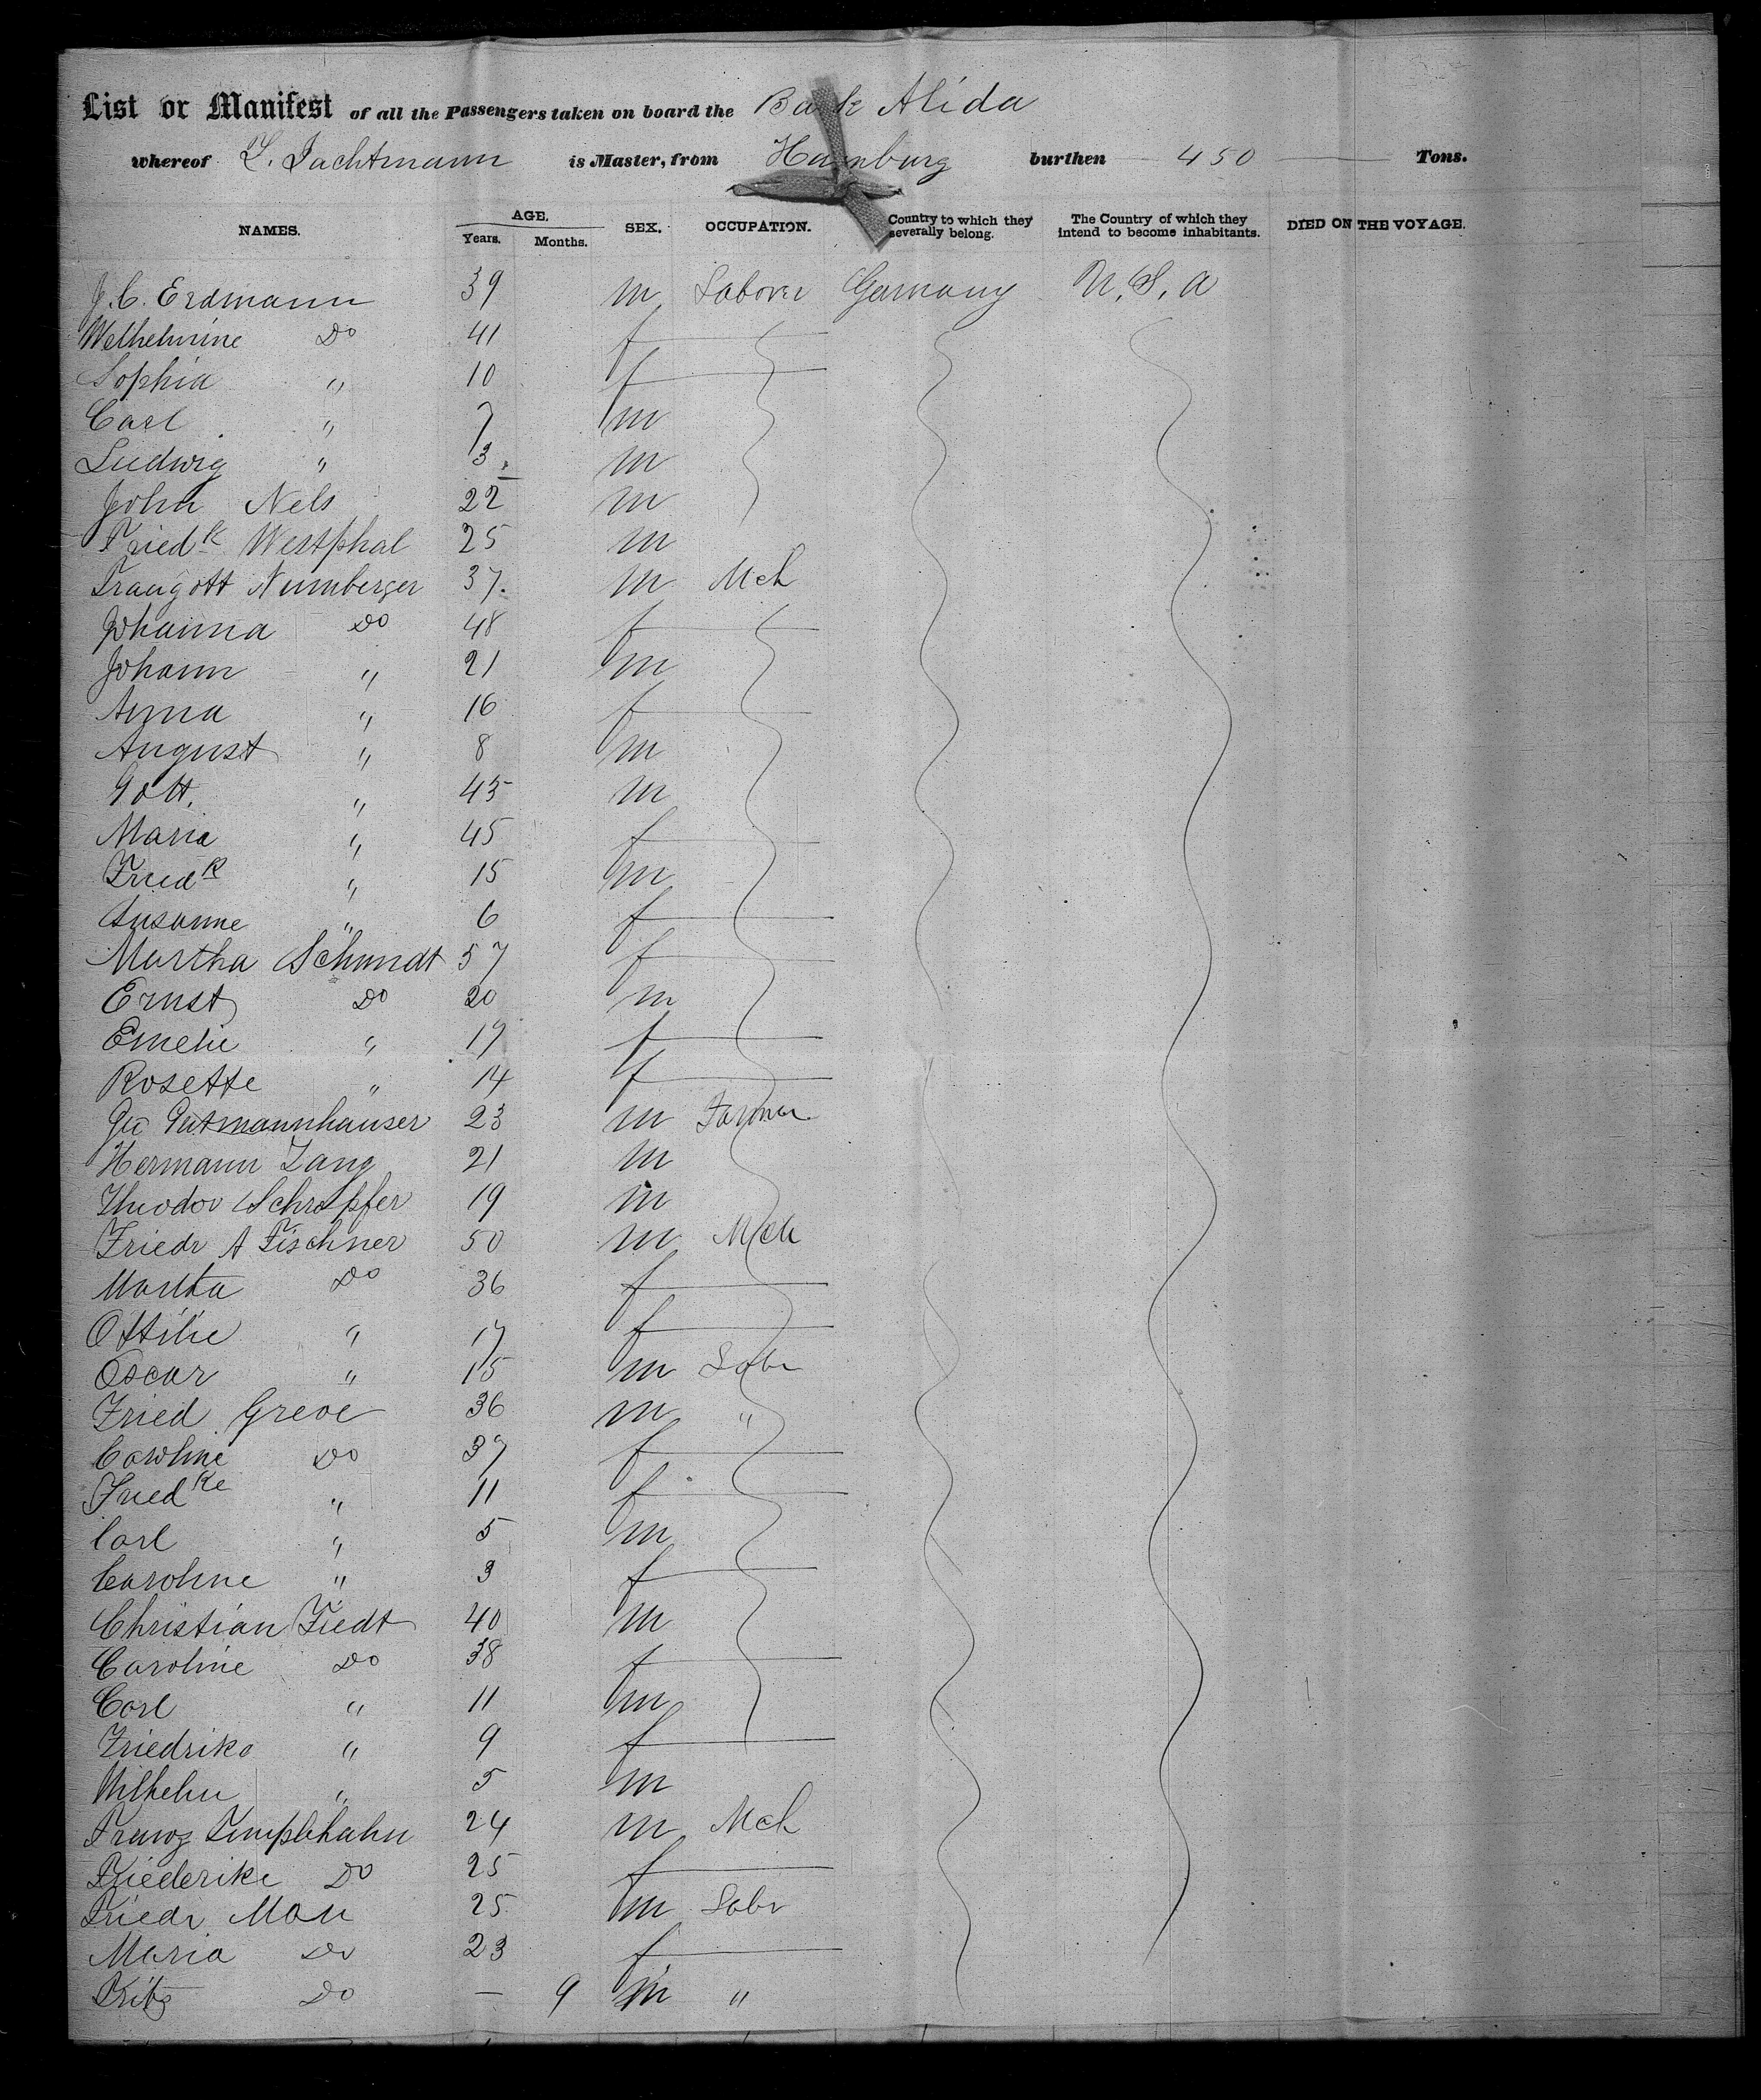 List or Manifest of all the Passengers taken on board the Bark Alida
whereof L. Jachtmann is Master, from Hamburg burthen 450 Tons.
NAMES. AGE. Years. Months. SEX. OCCUPATION. Country to which they severally belong. The Country of which they intend to become inhabitants. DIED ON THE VOYAGE.
J. C. Erdmann 39 m Laborer Germany U. S. A
Welhelmine Do 41 f
Sophia " 10 f
Carl " 7 m
Ludwig " 3 m
John Nels 22 m
Friedk Westphal 25 m
Traugott Nurnberger 37. m Mch
Johanna Do 48 f
Johann " 21 m
Anna " 16 f
August " 8 m
Gott. " 45 m
Maria " 45 f
Friedk " 15 m
Susanne " 6 f
Martha Schmidt 57 f
Ernst Do 20 m
Emelie " 17 f
Rosette " 14 f
Geo Gutmannhauser 23 m Farmer
Hermann Zang 21 m
Theodor Schrapfer 19 m
Friedr A Fischner 50 m Mch
Martha Do 36 f
Ottilie " 17 f
Oscar " 15 m Labr
Fried Greve 36 m "
Caroline Do 37 f
Friedke " 11 f
Carl " 5 m
Caroline " 3 f
Christian Tiedt 40 m
Caroline Do 38 f
Carl " 11 m
Friedrike " 9 f
Wilhelm " 5 m
Franz Timplehahn 24 m Mch
Friederike Do 25 f
Friedr Mau 25 m Labr
Maria Do 23 f
Fritz Do — 9 m "